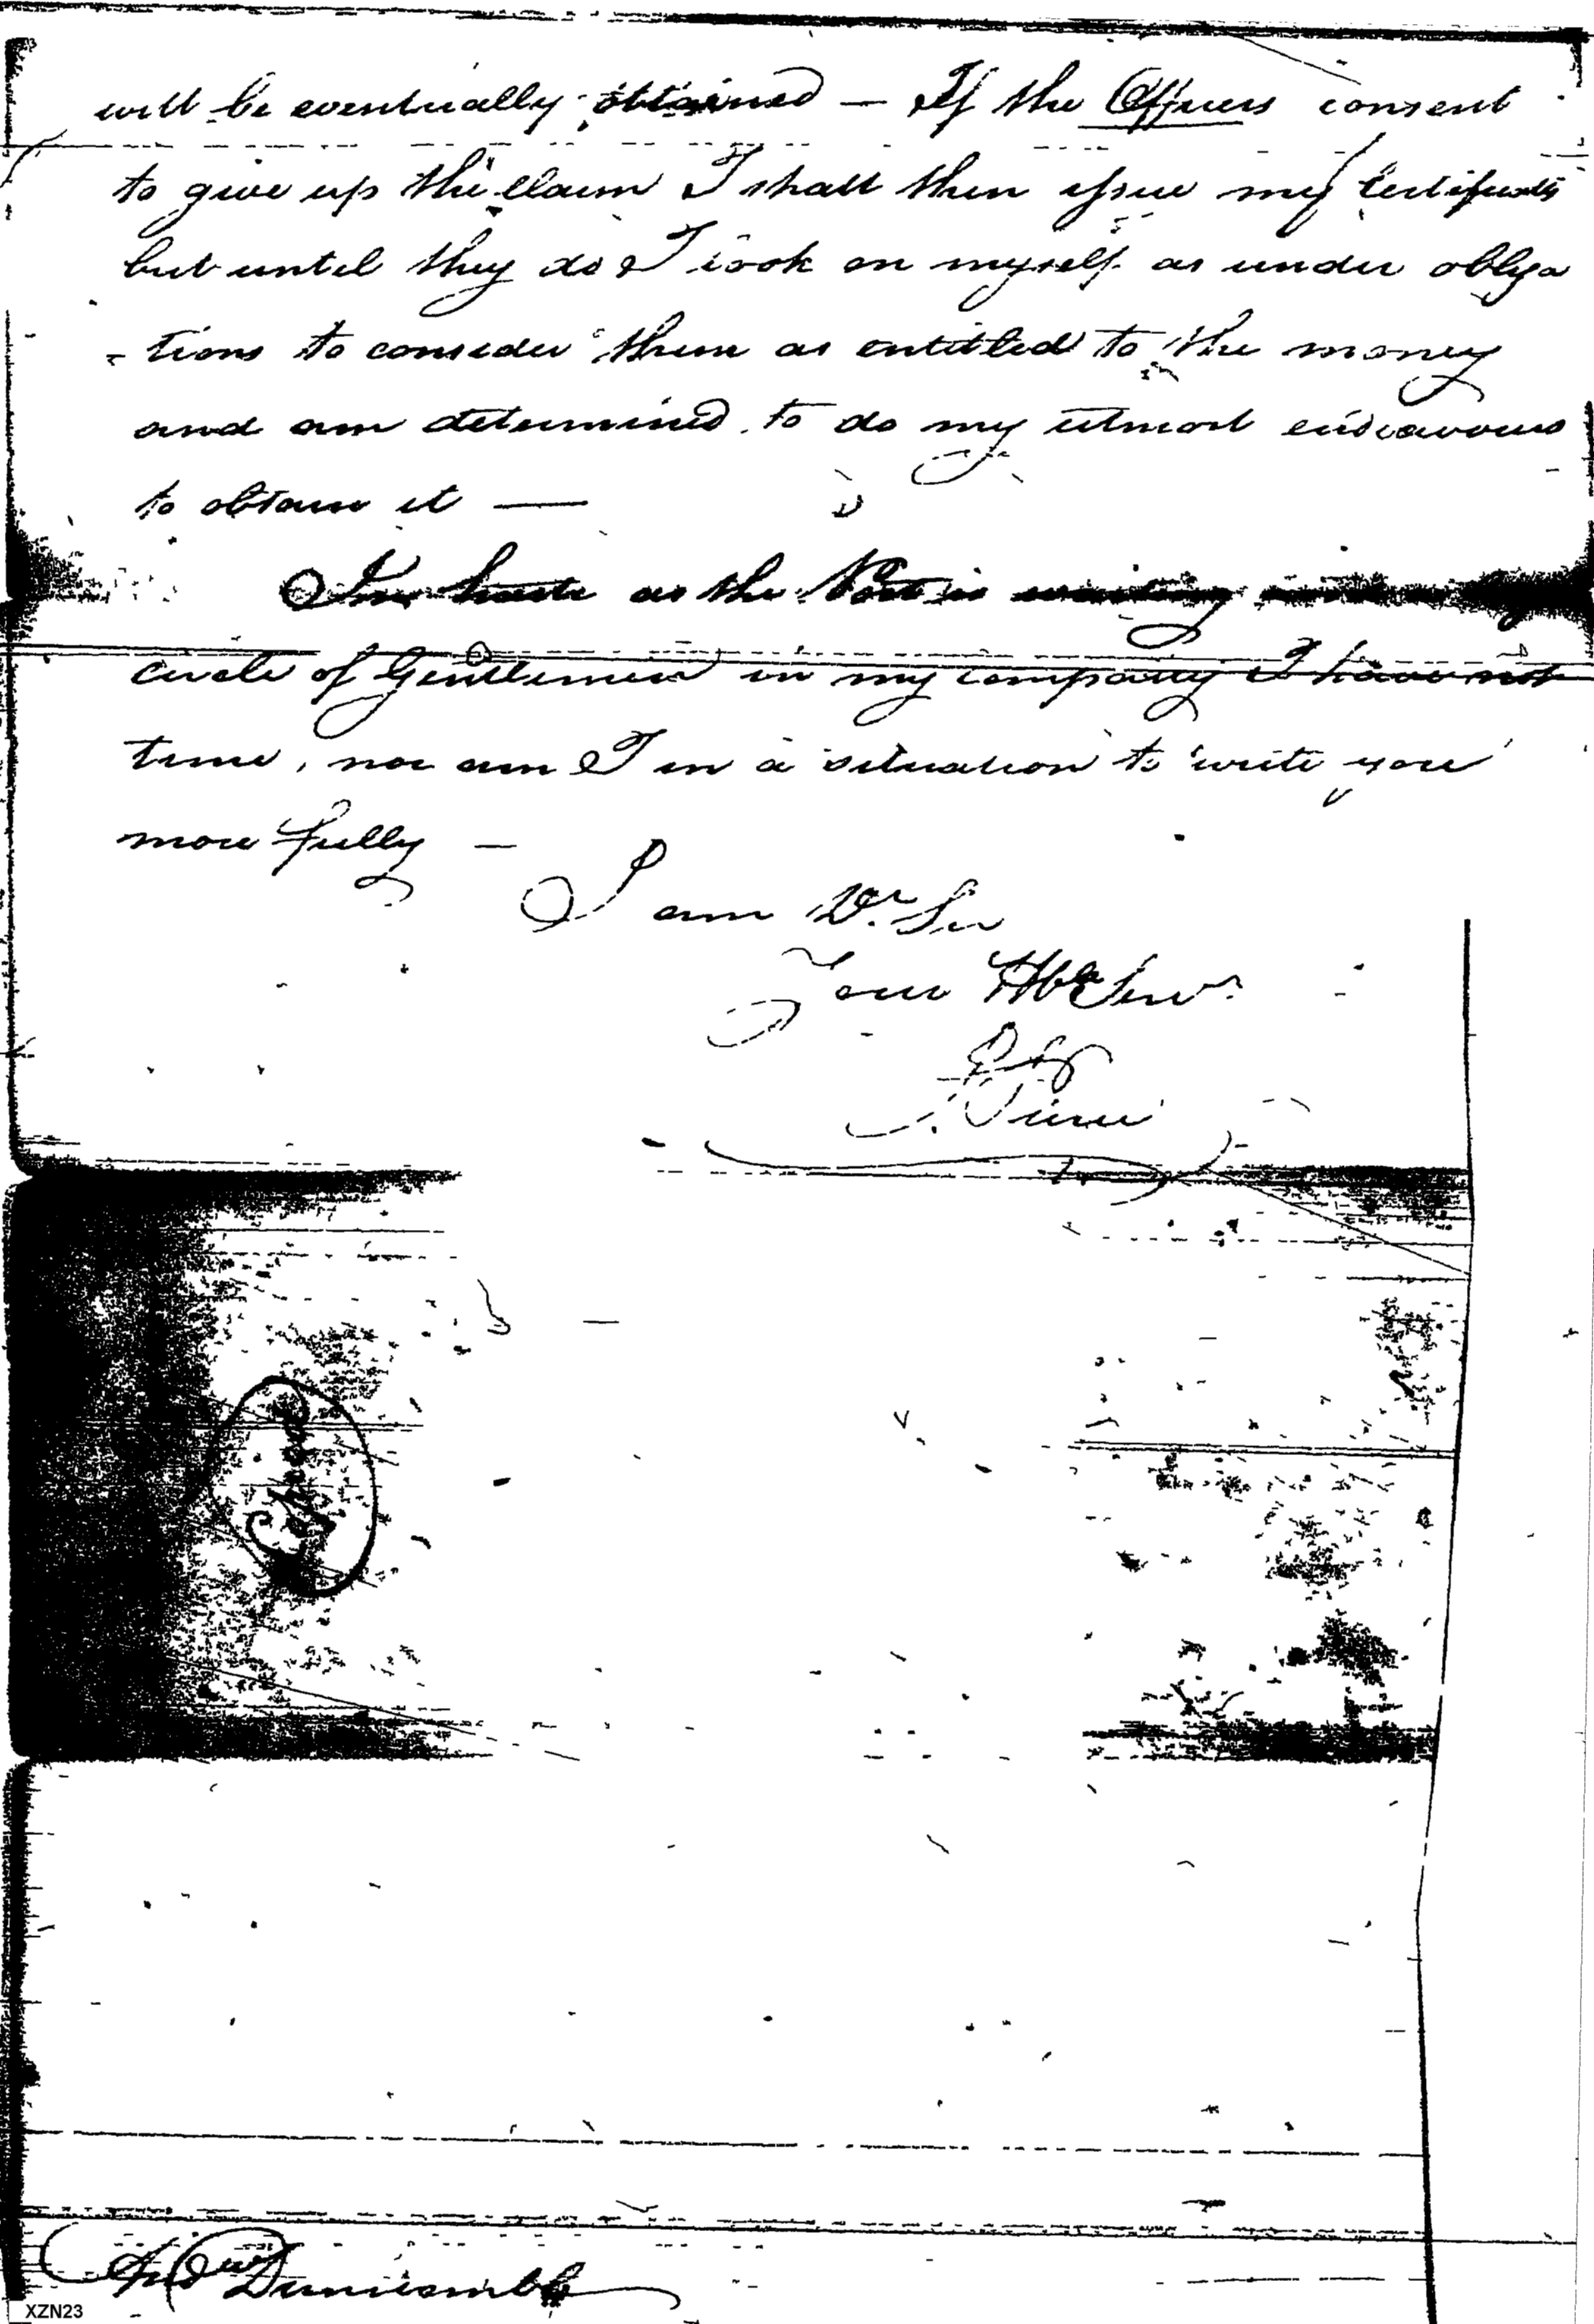 will be eventually obtained — If the Officers consent
to give up the claim I shall then issue my Certificate
but until they do I look on myself as under obliga
- tions to consider them as entitled to the money
and am determined to do my utmost endeavours
to obtain it —
In haste as the Post is waiting
circle of Gentlemen in my company I have not
time, nor am I in a situation to write you
more fully —
I am Dr. Sir
Your Hble Serv.
And Dunscomb
XZN23